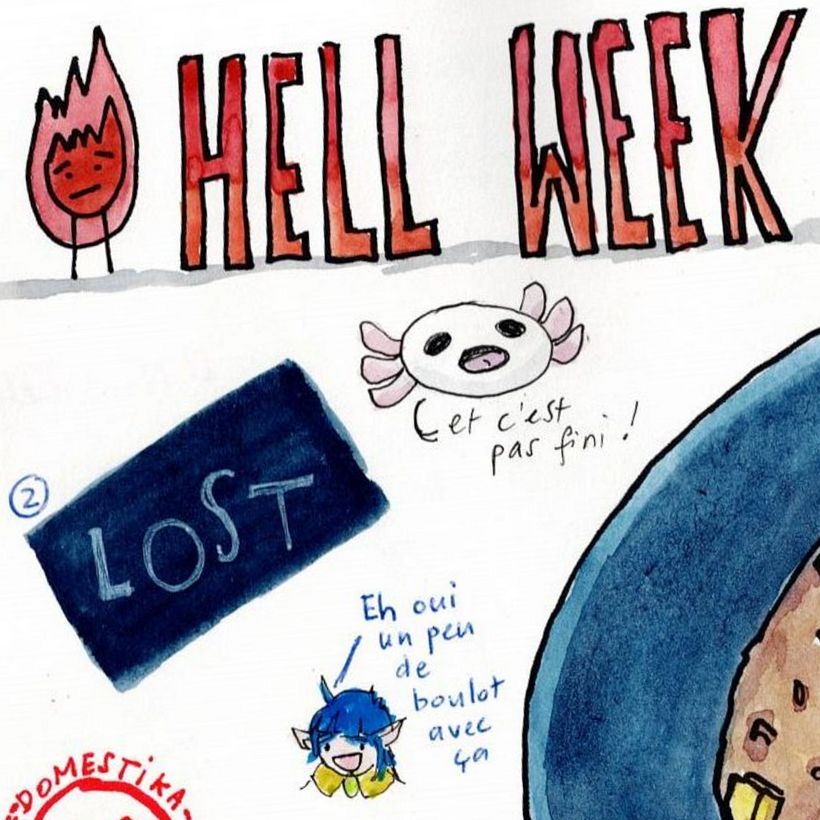 HELL WEEK
et c'est
pas fini !
2
LOST
Eh oui
un peu
de
boulot
avec
ça
DOMESTIKA